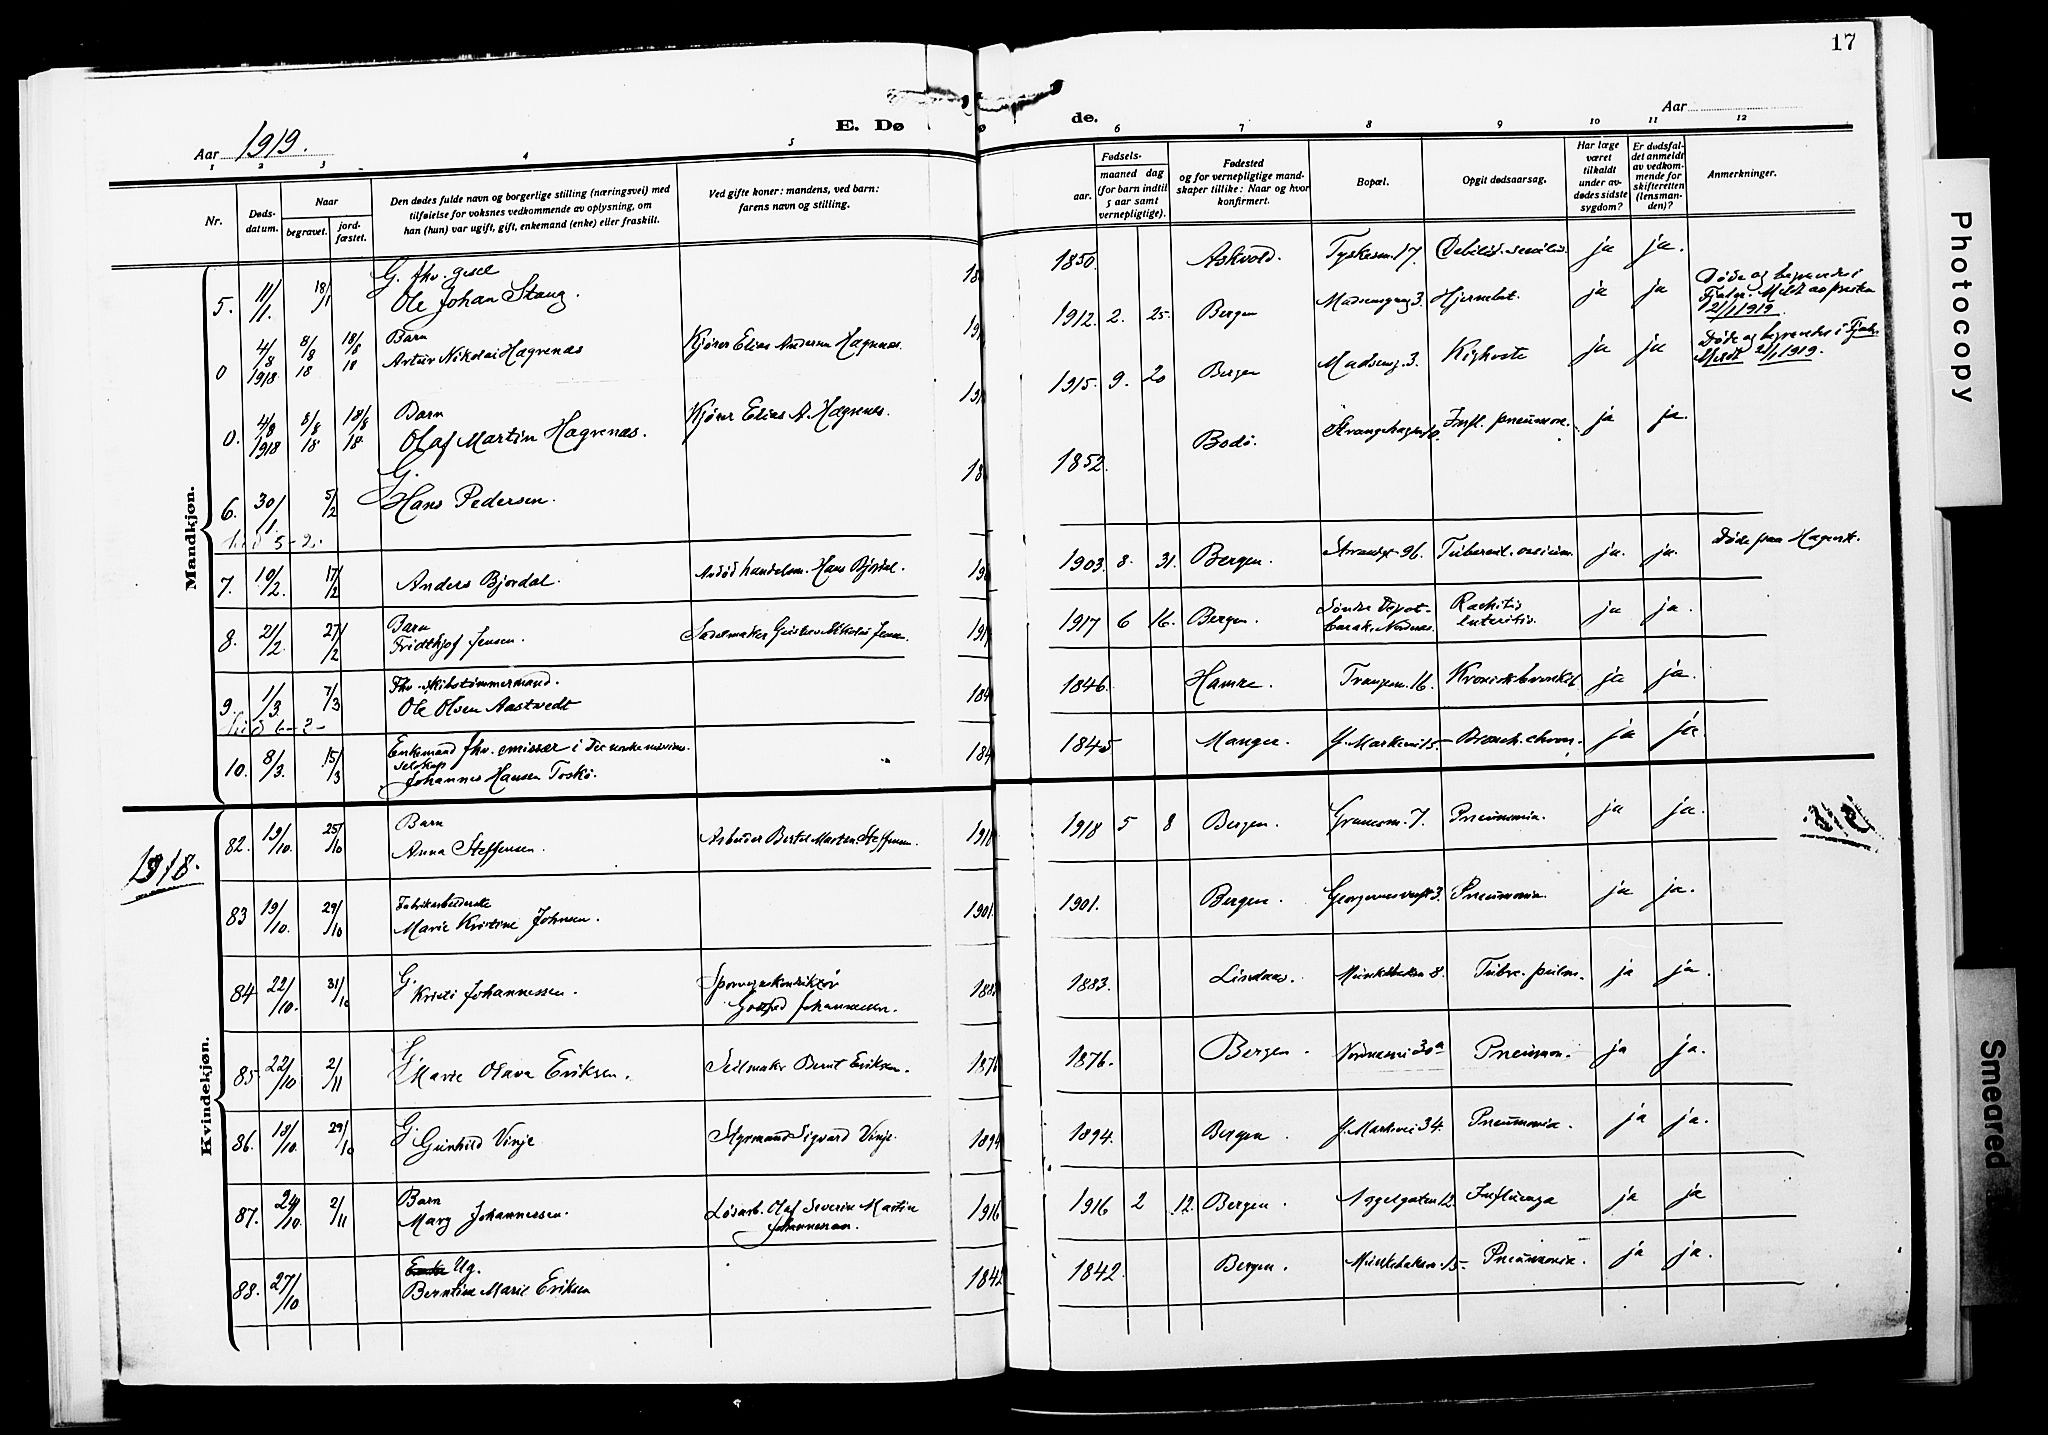 17
E. Dø de.
Aar 1919.
Aar
1 2 3 4 5 6 7 8 9 10 11 12
Nr.
Døds-
datum.
Naar
begravet.
jord-
fæstet.
Den dødes fulde navn og borgerlige stilling (næringsvei) med
tilføielse for voksnes vedkommende av oplysning, om
han (hun) var ugift, gift, enkemand (enke) eller fraskilt.
Ved gifte koner: mandens, ved barn:
farens navn og stilling.
Fødsels-
aar.
maaned dag
(for barn indtil
5 aar samt
vernepligtige).
Fødested
og for vernepligtige mand-
skaper tillike: Naar og hvor
konfirmert.
Bopæl.
Opgit dødsaarsag.
Har læge
været
tilkaldt
under av-
dødes sidste
sygdom?
Er dødsfal-
det anmeldt
av vedkom-
mende for
skifteretten
(lensman-
den)?
Anmerkninger.
Mandkjøn.
5. 11/1. 18/1 G. fhv. gsel
Ole Johan Stang. 1850. Askvold. Tyskesm. 17. ja ja.
0 4/8 1918 8/8 18 18/8 18 Barn
Artur Nikolai Hægrenæs Kjører Elias Andersen Hægrenæs. 1912. 2. 25. Bergen Madsensg 3. ja ja
Døde og begravedes i
Fjaler. Meldt av presten
2/1 1919.
0. 4/8 1918 8/8 18 18/8 18 Barn
Olaf Martin Hægrenæs. Kjører Elias A. Hægrenæs. 1915. 9. 20 Bergen Madseng. 3. Kighoste ja ja
Døde og begravedes i Fjaler.
Meldt 2/1 1919.
6. 30/1. 5/2 G.
Hans Pedersen. 1852. Bodö. Infl. pneumon. ja ja.
7. 10/2. 17/2 Anders Bjordal. Avdød handelsm. Hans Bjordal. 1903. 8. 31. Bergen. Strandgt 96. ja. ja.
8. 21/2. 27/2 Barn
Fridtkjof Jensen. Sadelmaker Gustav Nikolai Jensen. 1917 6 16. Bergen. Søndre Depot-
barak. Nordnes. Rachitis
Enteritis. ja ja.
9. 1/3. 7/3 Fhv. skibstømmermand.
Ole Olsen Aastvedt 1846. Hamre. ja ja.
10. 8/3. 15/3 Enkemand fhv. emissær i det norske misions-
selskap
Johannes Hansen Toskö. 1845 Manger. Y. Markevei 15- Bronch. chron. ja ja.
1918.
Kvindekjøn.
82. 19/10. 25/10 Barn
Anna Steffensen. Arbeider Bertel Marten Steffensen. 1918 5 8 Bergen. Pneumonia. ja ja.
83 19/10. 29/10 Fabrikarbeiderske
Marie Kristine Johnsen. 1901. Bergen. Pneumonia. ja ja.
84 22/10. 31/10 G.
Kristi Johannessen. Sporveiskonduktør
Gotfred Johannessen. 1883. Lindaas. Munkebakken 8. Tubrc. pulm. ja ja.
85 22/10. 2/11 G.
Marie Olava Eriksen. Seilmaker Bernt Eriksen. 1876. Bergen. Nordnesvei 30a Pneumon. ja ja.
86. 18/10. 29/10 G.
Gunhild Vinje Styrmand Sigvard Vinje. 1894. Bergen. Y. Markvei 34. Pneumonia. ja ja.
87. 24/10. 2/11 Barn
Mary Johannessen. Løsarb. Olaf Severin Martin
Johannessen. 1916 2 12. Bergen. Influenza ja ja
88. 27/10 Ug.
Berntine Marie Eriksen 1842. Bergen. Munkebakken 15- Pneumonia. ja ja.
Photocopy
Smeared